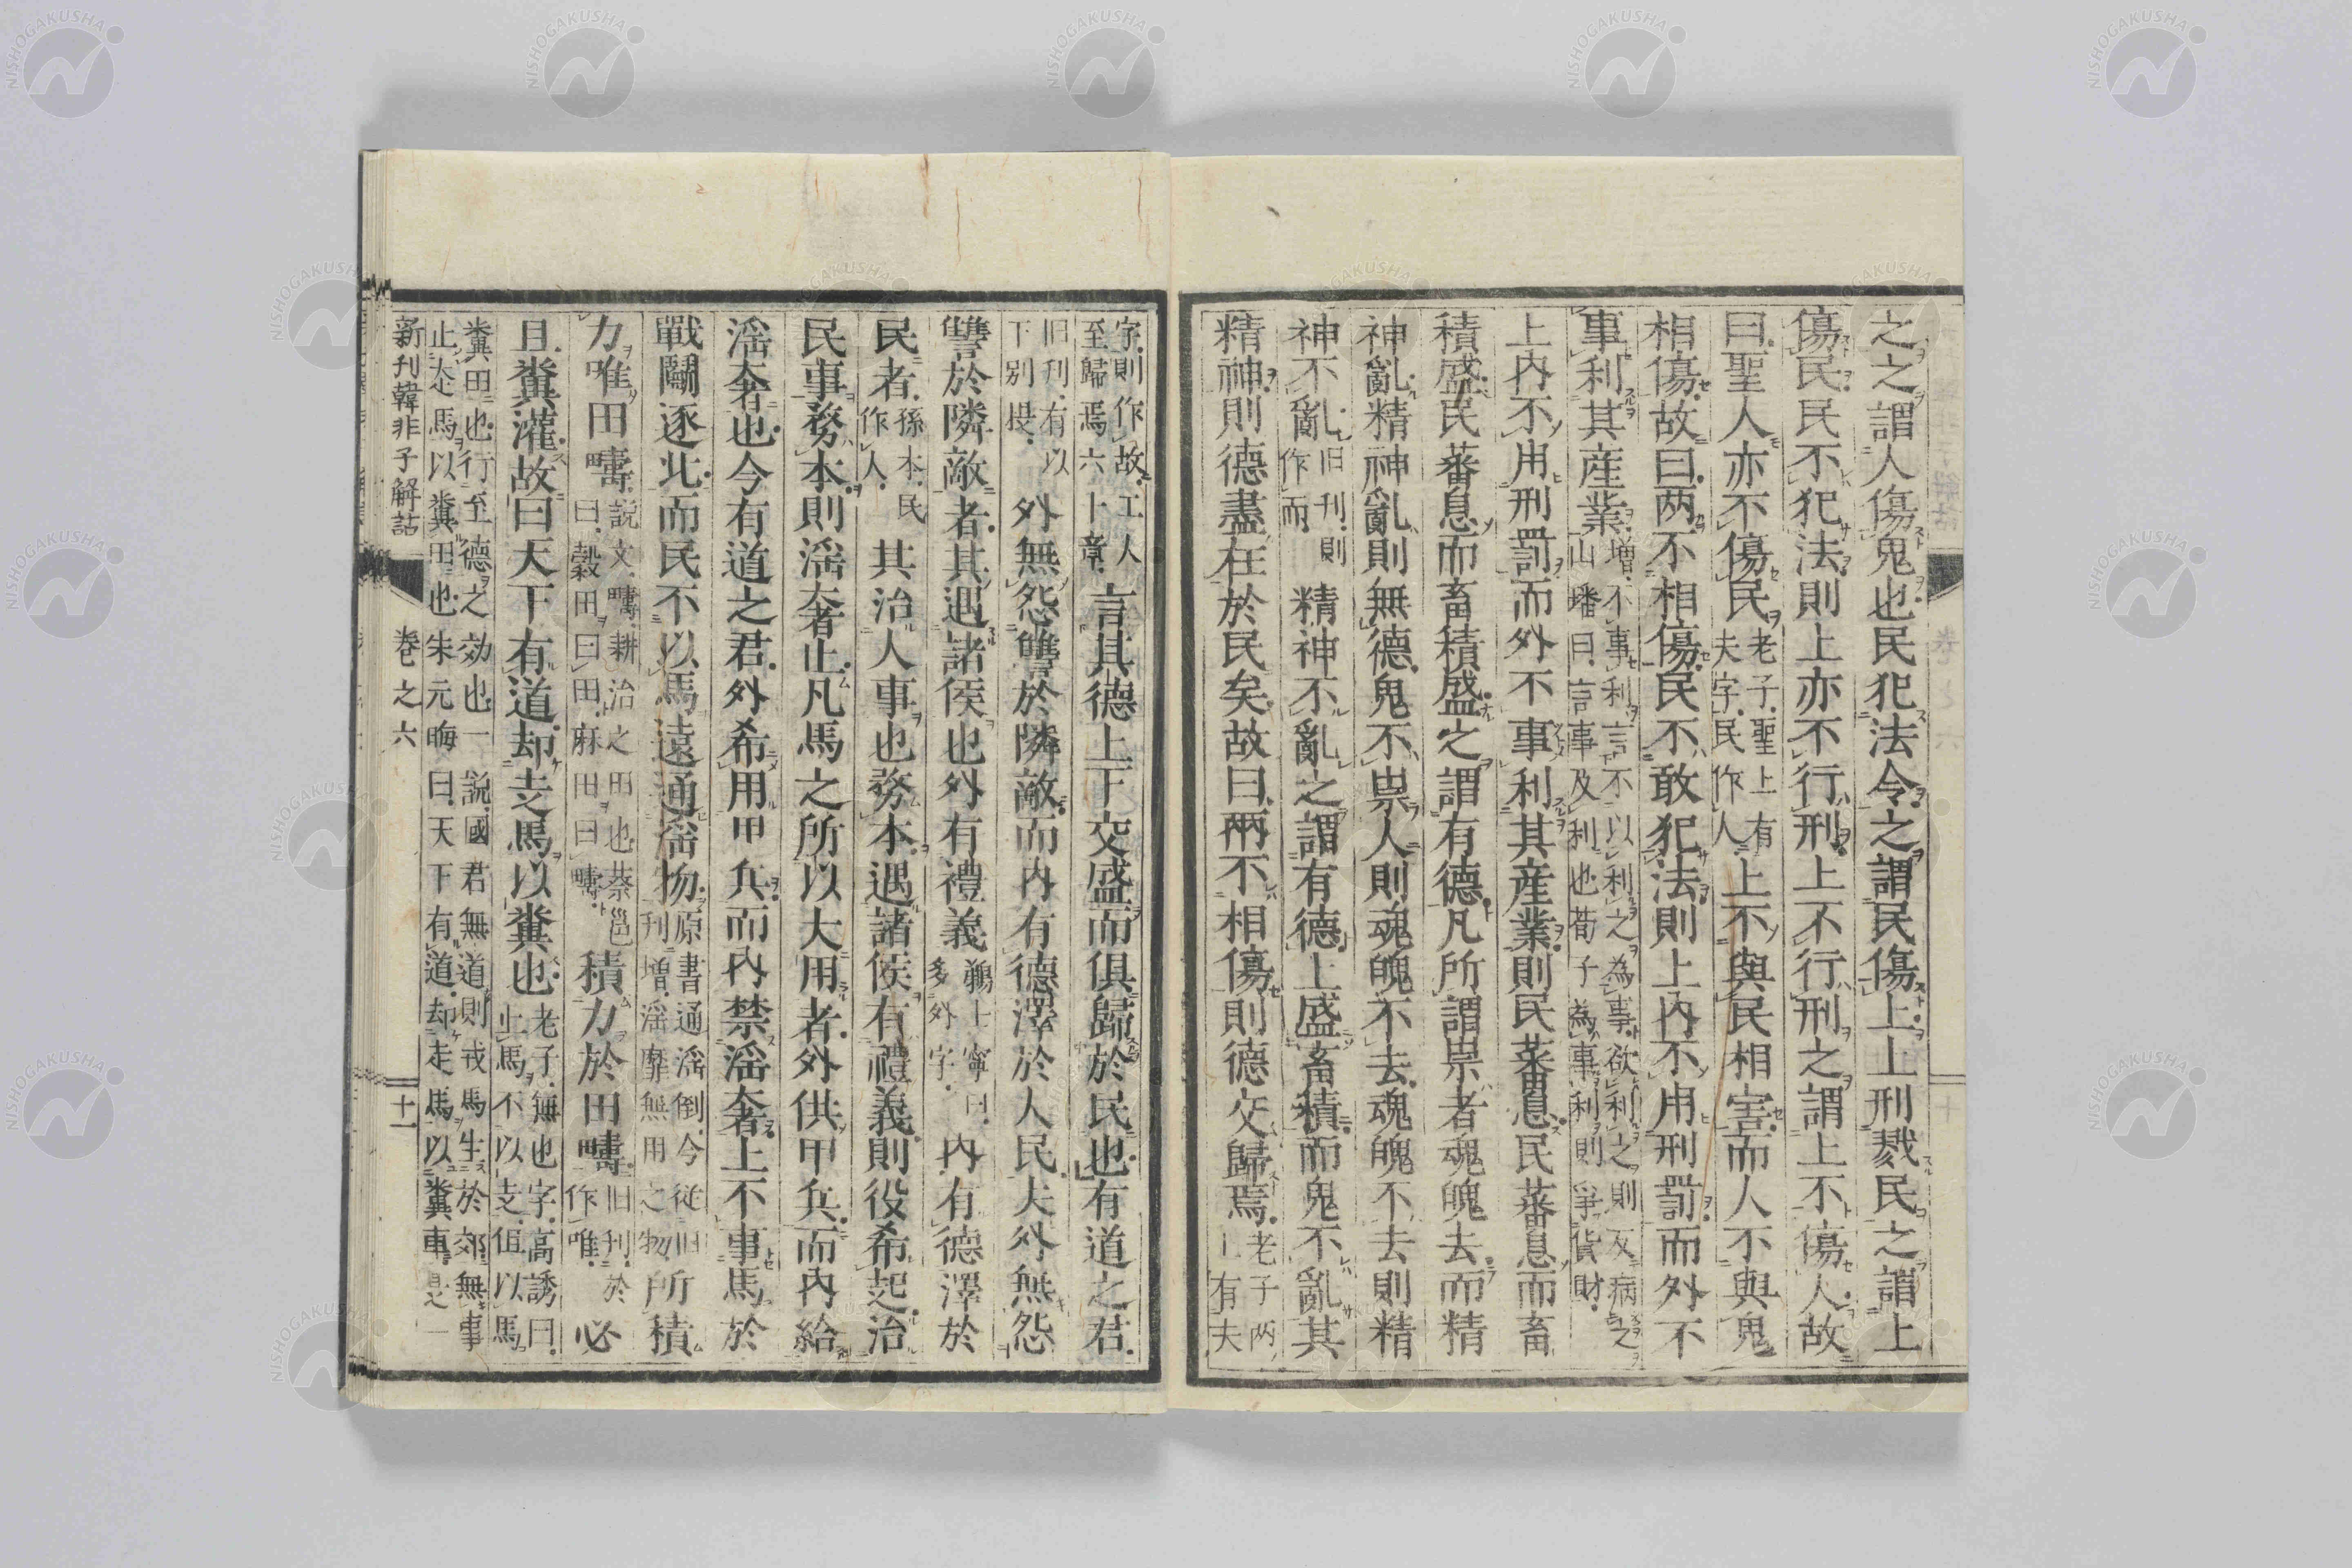 之之謂人傷鬼也民犯法令之謂民傷上上刑戮民之謂上
傷民民不犯法則上亦不行刑上不行刑之謂上不傷人故
曰聖人亦不傷民老子聖上有夫字民作人上不與民相害而人不與鬼
相傷故曰两不相傷民不敢犯法則上内不用刑罰而外不
事利其産業増不事利言不以利之為事欲利之則反病之山蟠曰言事及利也荀子為事利則爭貨財
上内不用刑罰而外不事利其産業則民蕃息民蕃息而畜
積盛民蕃息而畜積盛之謂有德凡所謂祟者魂魄去而精
神亂精神亂則無德鬼不祟人則魂魄不去魂魄不去則精
神不亂旧刊則作而精神不亂之謂有德上盛畜積而鬼不亂其
精神則德盡在於民矣故曰兩不相傷則德交歸焉老子两上有夫
字則作故工人至歸焉六卜章言其德上下交盛而俱歸於民也有道之君
旧刊有以下别提外無怨讐於隣敵而内有德澤於人民夫外無怨
讐於隣敵者其遇諸侯也外有禮義鵜士寧曰多外字内有德澤於
民者孫本民作人其治人事也務本遇諸侯有禮義則役希起治
民事務本則淫奢止凡馬之所以大用者外供甲兵而内給
淫奢也今有道之君外希用甲兵而内禁淫奢上不事馬於
戰鬭逐北而民不以馬遠通淫物原書通淫倒今從旧刊増淫靡無用之物所積
力唯田疇説文疇耕治之田也蔡邕曰穀田曰田麻田曰疇積力於田疇旧刊於作唯必
且糞灌故曰天下有道却走馬以糞也老子無也字高誘曰止馬不以走但以馬
糞田也行至德之効也一説國君無道則戎馬生於郊無事止走馬以糞田也朱元晦曰天下有道却走馬以糞車是一
新刊韓非子解詁 卷之六 十一